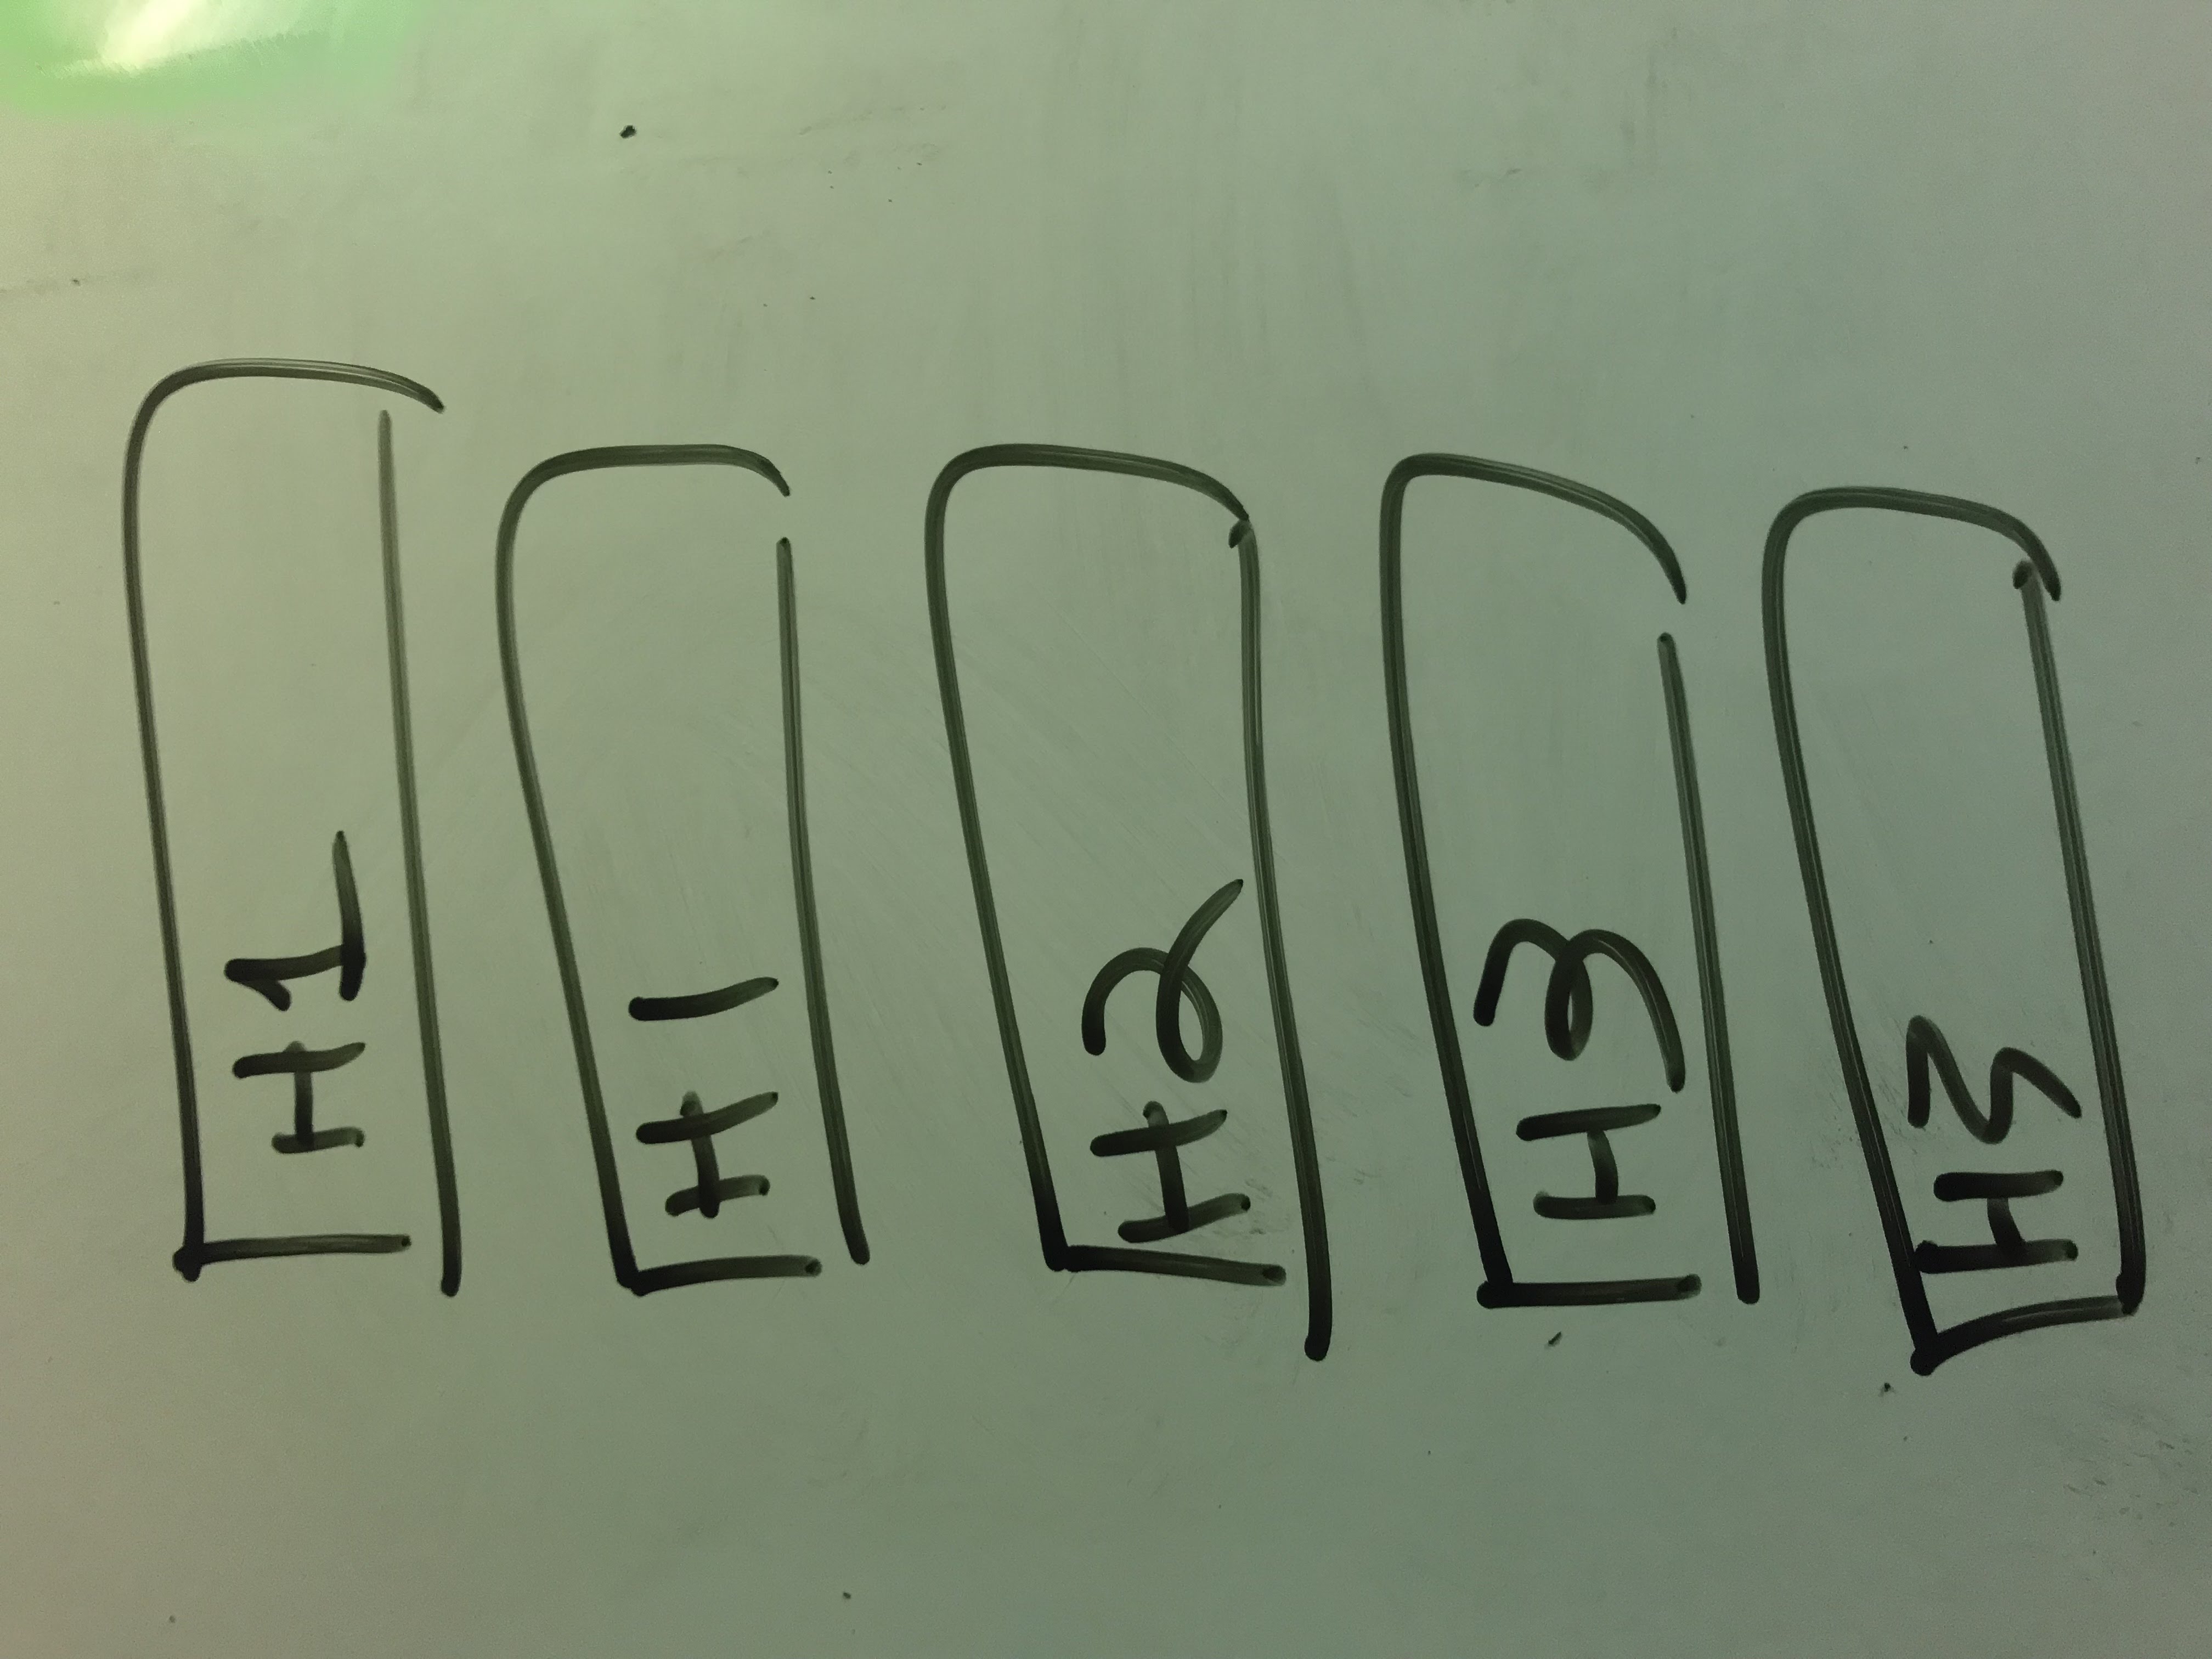 H1
H1
H2
H3
H3